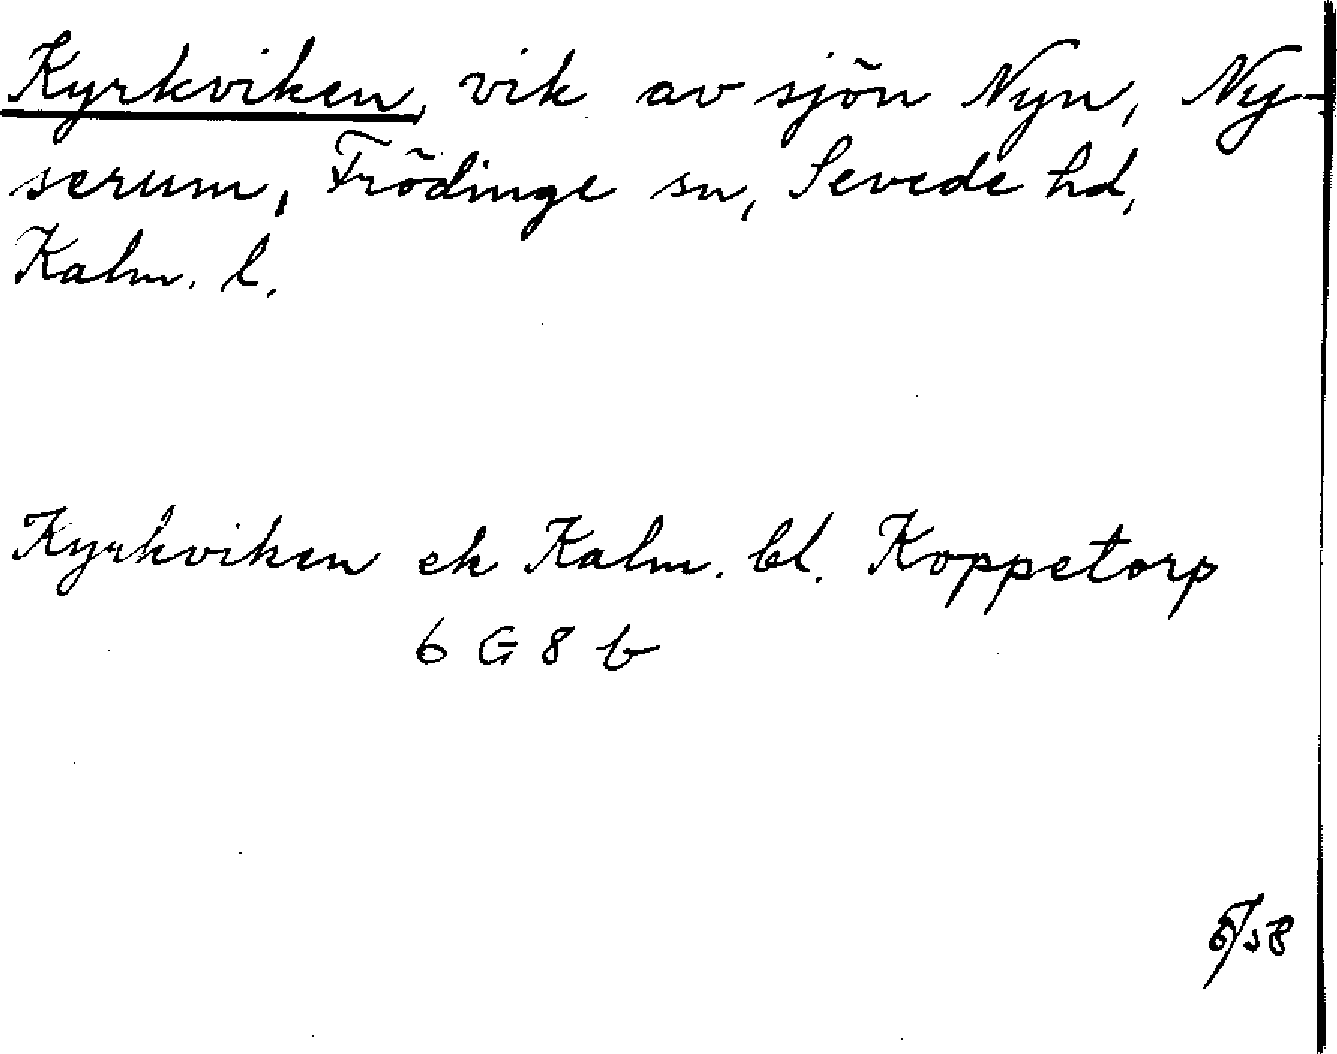 Kyrkviken, vik av sjön Nyn, Ny-
serum, Frödinge sn, Sevede hd,
Kalm. l.
Kyrkviken ek Kalm. bl. Koppetorp
6 G 8 b